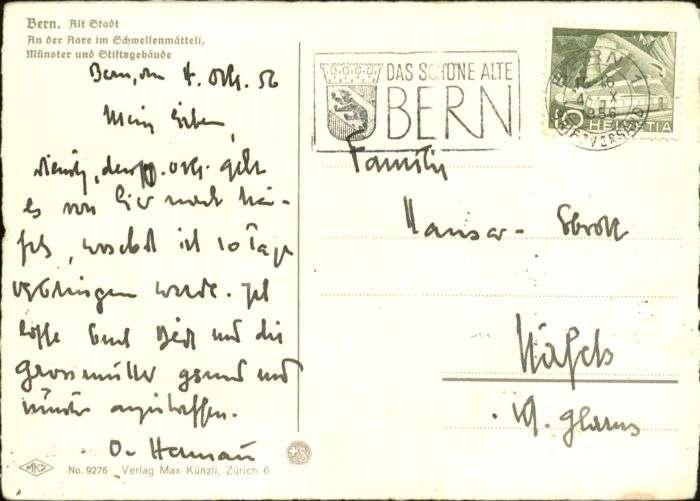 Bern. Alt Stadt
An der Aare im Schwellenmätteli,
Münster und Stiftsgebäude
Bern, den 4. Okt. 56
Mein Lieben,
Okt. geht
es von hier nach Nä-
fels, woselbst ich 10 Tage
verbringen werde. Ich
hoffe Euch und die
Grossmutter gesund und
munter anzutreffen.
O. Hermann
MKZ
No. 9276 Verlag Max Künzli, Zürich 6
DAS SCHÖNE ALTE
BERN
BERN 1
4 X
1956
BRIEFVERSAND
HELVETIA
Familie
Hauser-
Näfels
Kt. Glarus